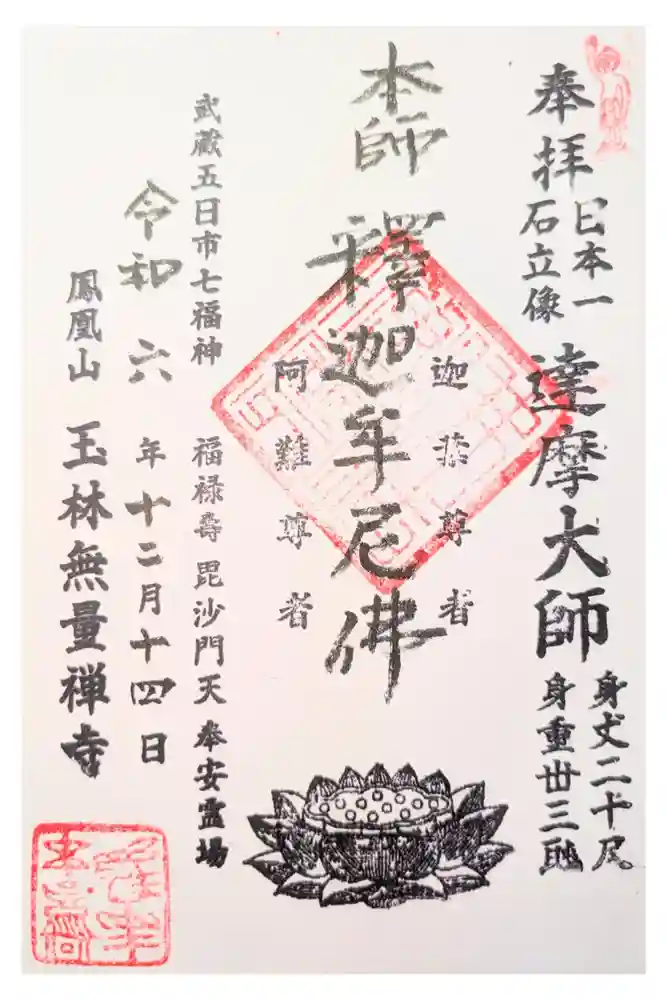 奉拝
日本一
石立像
達摩大師
身丈二十尺
身重丗三
迦葉尊者
本師釋迦牟尼佛
阿難尊者
武蔵五日市七福神 福禄寿 毘沙門天 奉安霊場
令和六年十二月十四日
鳳凰山 玉林無量禅寺